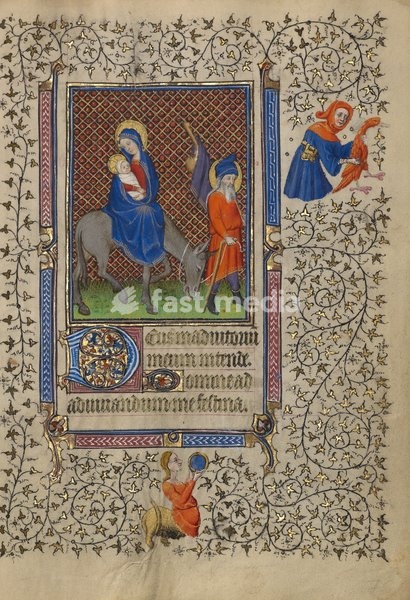 Deus in adiutoriu
meum intende.
Domine ad
adiuuandum me festina.
fast media